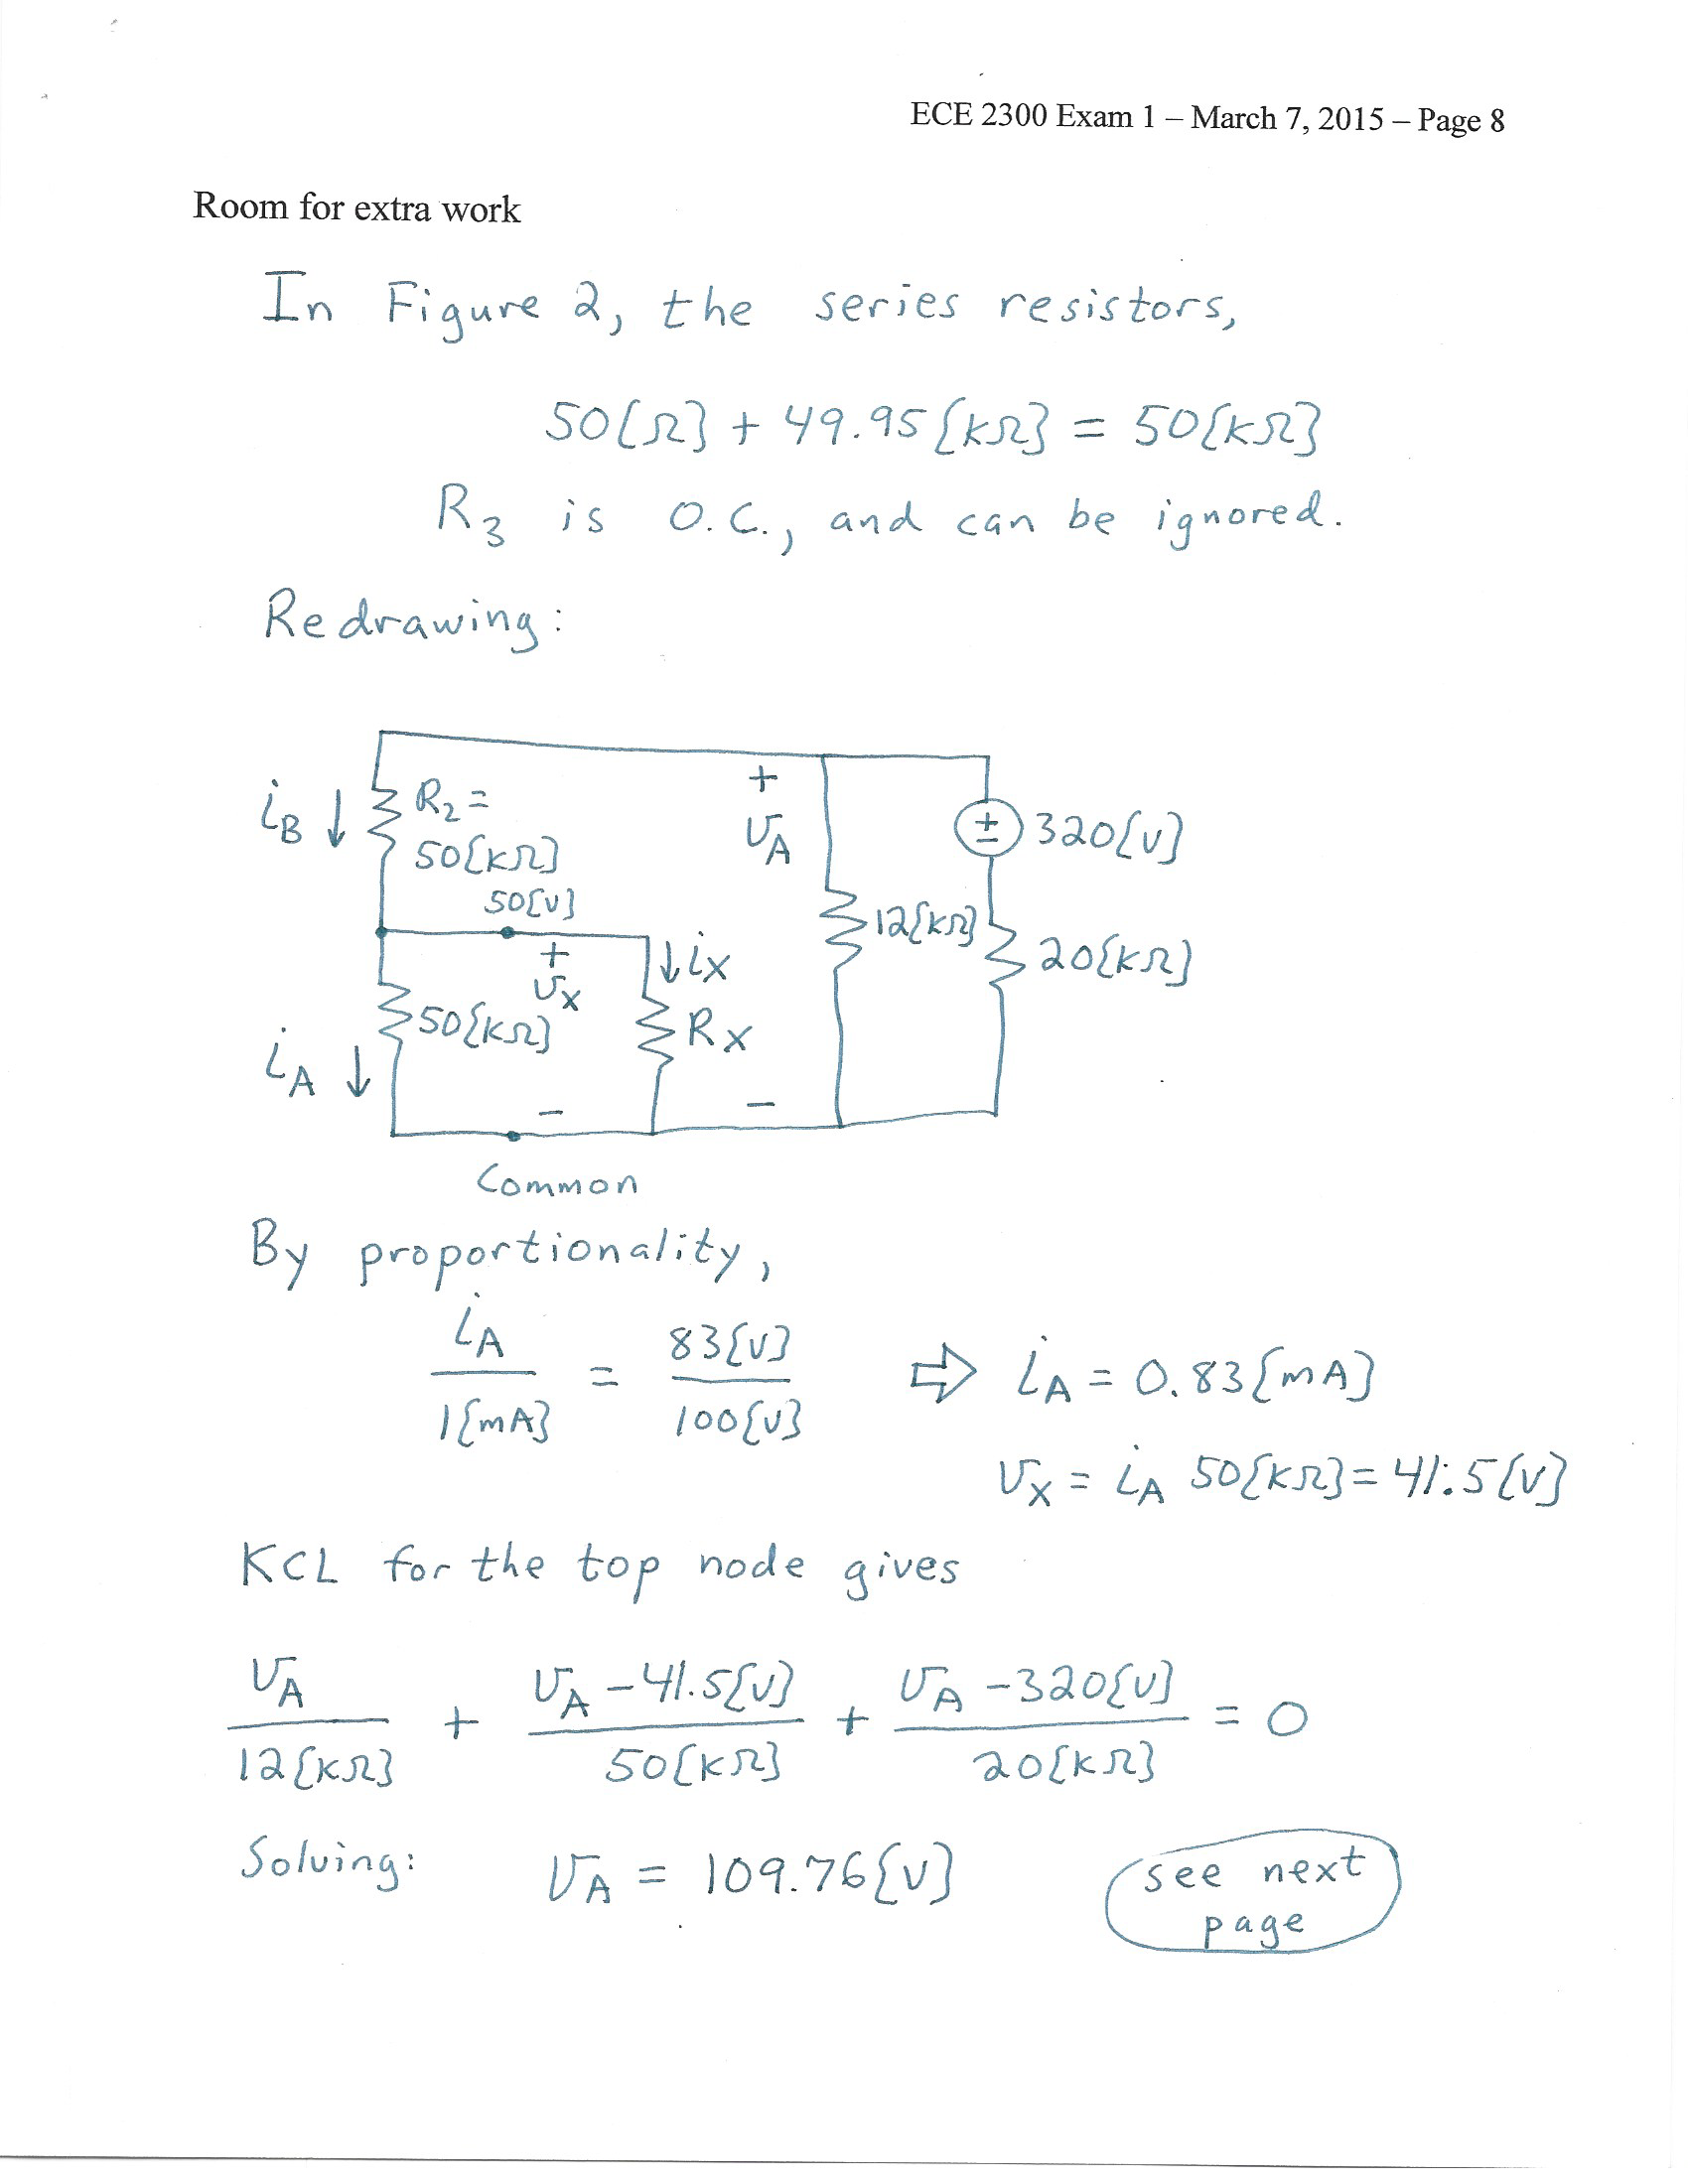 ECE 2300 Exam 1 – March 7, 2015 – Page 8
Room for extra work
In Figure 2, the series resistors,
50[Ω] + 49.95[kΩ] = 50[kΩ]
R3 is O.C., and can be ignored.
Redrawing:
iB ↓
R2 =
50[kΩ]
50[V]
+
vA
−
±
320[V]
12[kΩ]
20[kΩ]
+
vX
−
↓iX
RX
50[kΩ]
iA ↓
Common
By proportionality,
iA / 1[mA] = 83[V] / 100[V] ⇒ iA = 0.83[mA]
vX = iA 50[kΩ] = 41.5[V]
KCL for the top node gives
vA / 12[kΩ] + vA − 41.5[V] / 50[kΩ] + vA − 320[V] / 20[kΩ] = 0
Solving: vA = 109.76[V]
see next
page